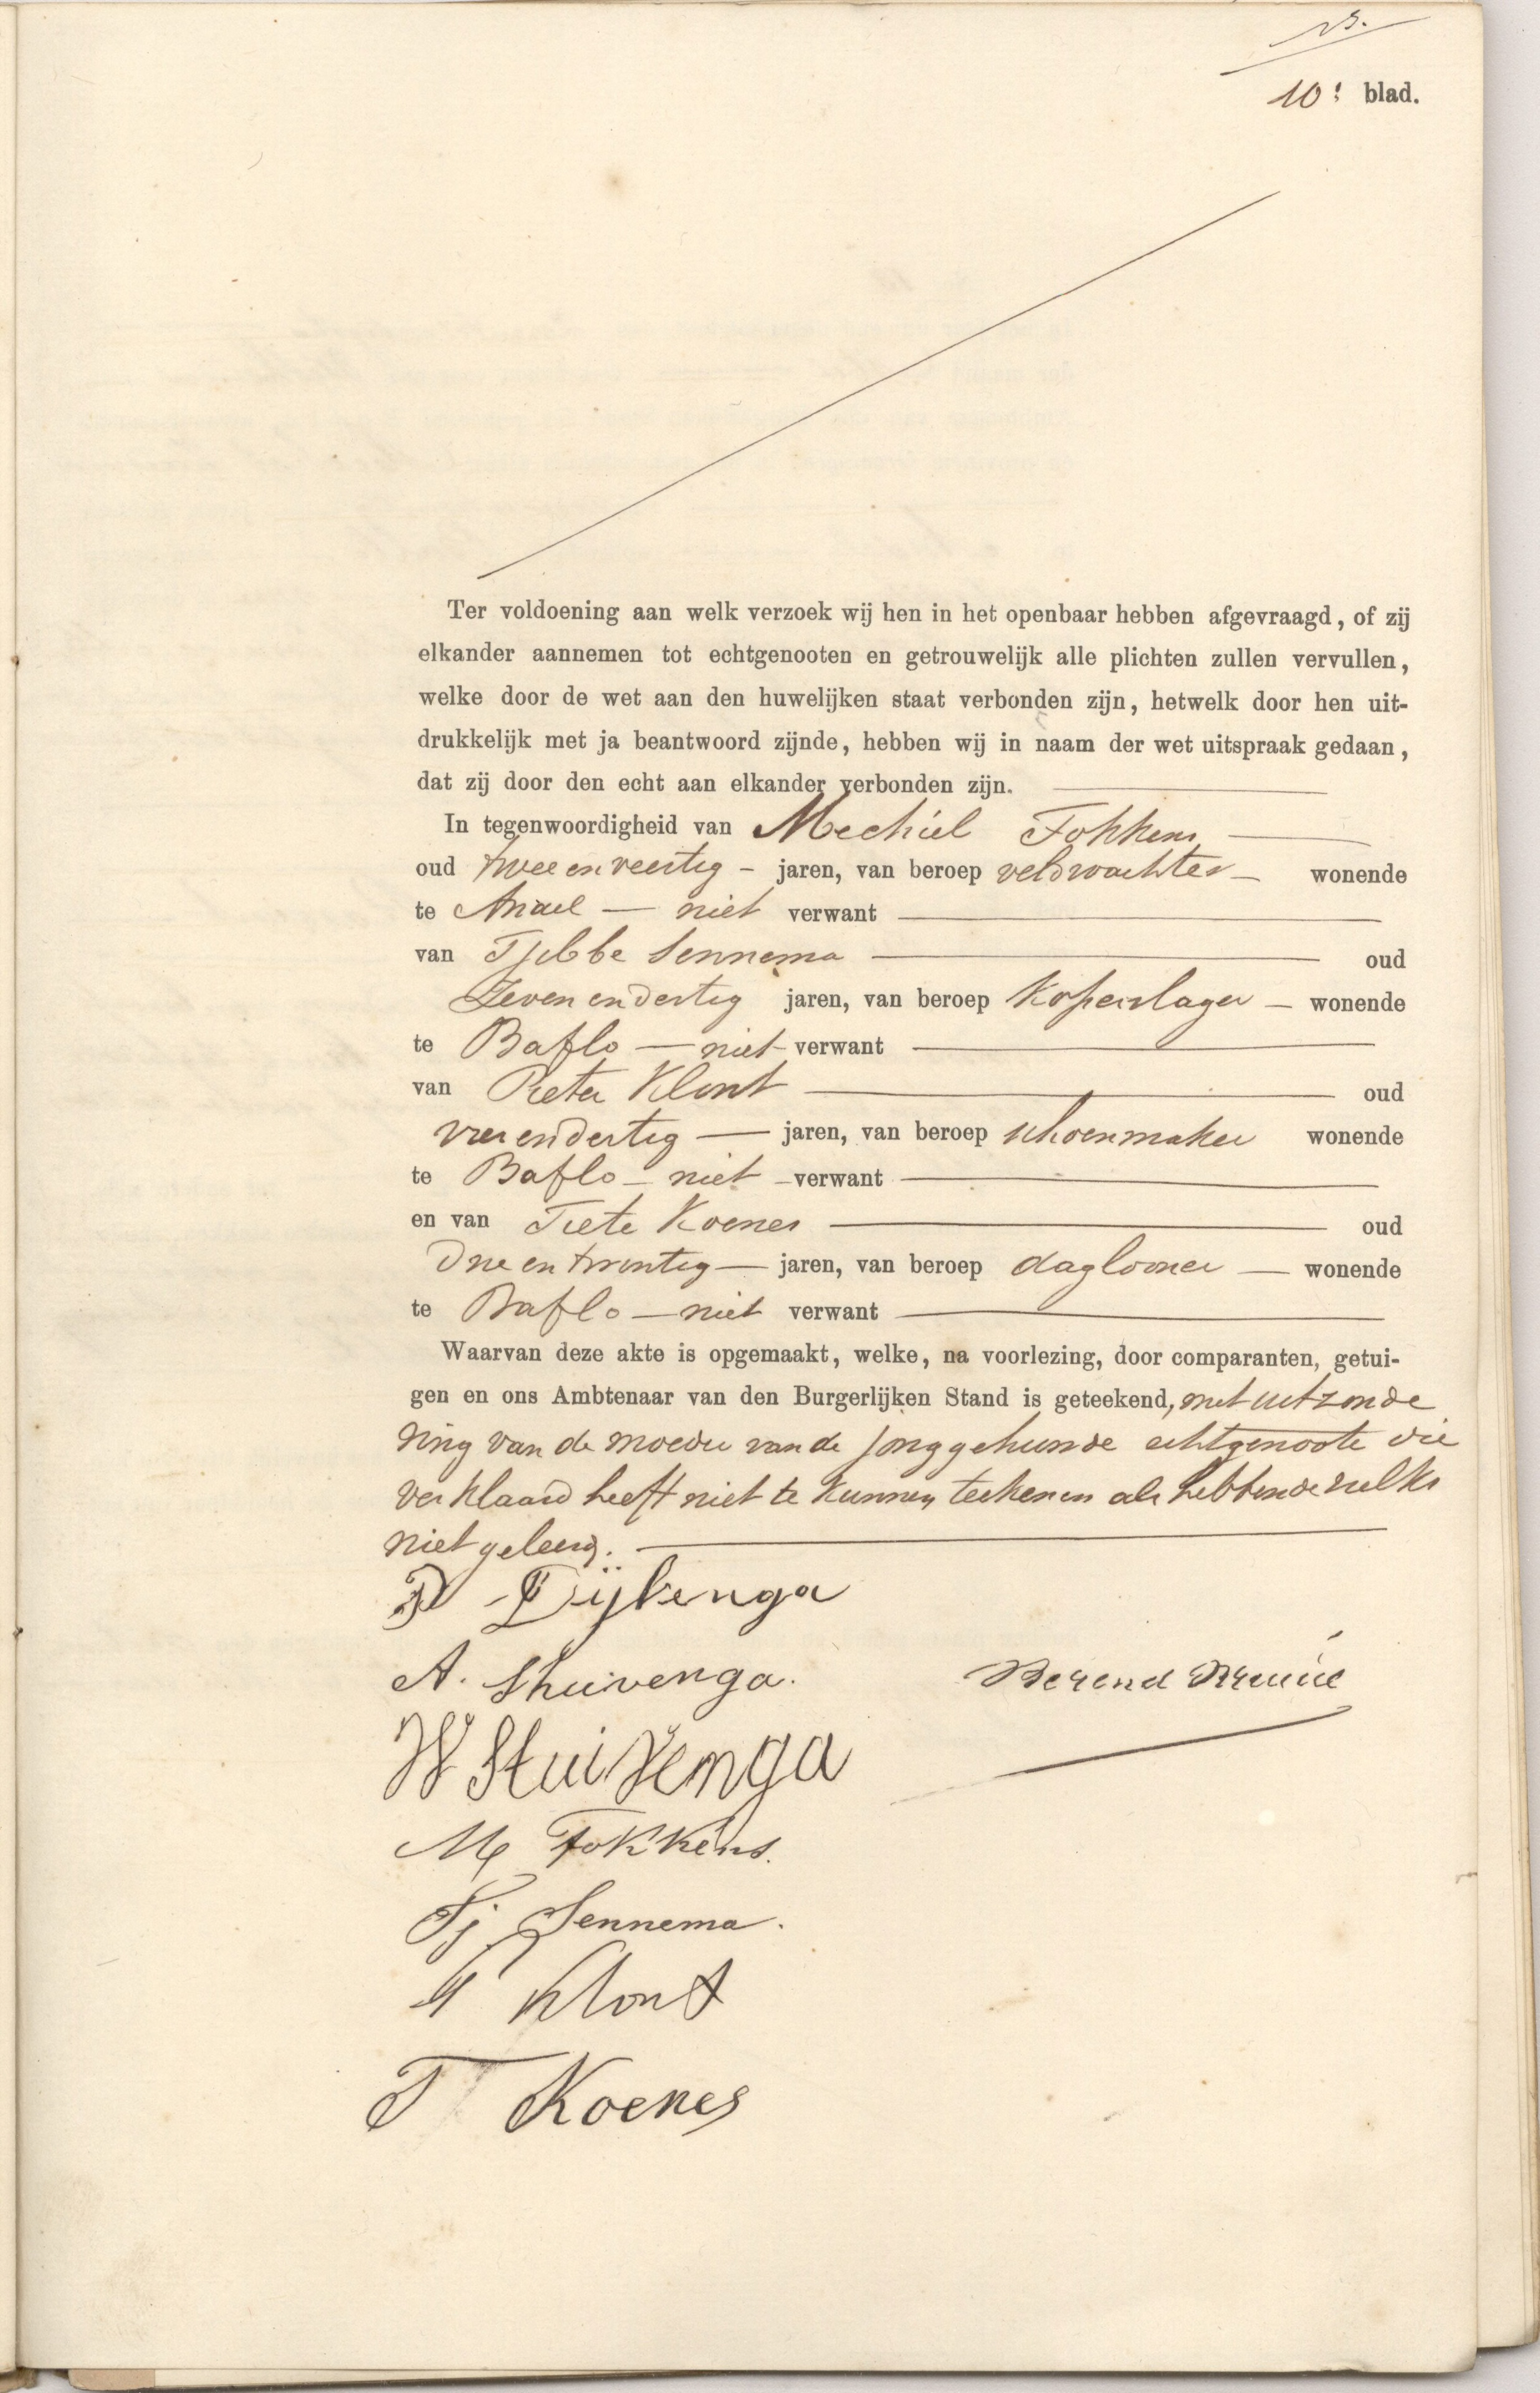 10e blad.
Ter voldoening aan welk verzoek wij hen in het openbaar hebben afgevraagd, of zij
elkander aannemen tot echtgenooten en getrouwelijk alle plichten zullen vervullen,
welke door de wet aan den huwelijken staat verbonden zijn, hetwelk door hen uit-
drukkelijk met ja beantwoord zijnde, hebben wij in naam der wet uitspraak gedaan,
dat zij door den echt aan elkander verbonden zijn.
In tegenwoordigheid van Mechiel Fokkens
oud twee en veertig - jaren, van beroep veldwachter - wonende
te — niet verwant
van Tjebbe Sennema oud
Zeven en dertig jaren, van beroep koperslager - wonende
te Baflo — niet verwant
van Pieter Klont oud
vier en dertig — jaren, van beroep schoenmaker wonende
te Baflo — niet verwant
en van Tiete Koenes oud
Drie en twintig — jaren, van beroep daglooner — wonende
te Baflo — niet verwant
Waarvan deze akte is opgemaakt, welke, na voorlezing, door comparanten, getui-
gen en ons Ambtenaar van den Burgerlijken Stand is geteekend, met uitzonde
ring van de moeder van de jonggehuwde echtgenoote die
verklaard heeft niet te kunnen teekenen als hebbende zulks
niet geleerd.
P Dijkenga
A. Stuivenga. Berend
W Stuivenga
M Fokkens.
Tj. Sennema.
P Klont
T Koenes